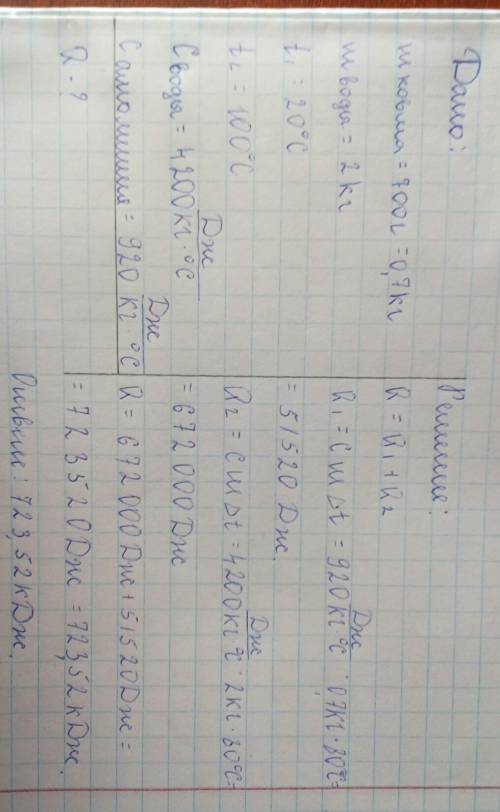 Дано:
m ковша = 700г = 0,7кг
m воды = 2кг
t₁ = 20°C
t₂ = 100°C
C воды = 4200 Дж/кг·°C
C алюминия = 920 Дж/кг·°C
Q - ?
Решение:
Q = Q₁ + Q₂
Q₁ = cmΔt = 920 Дж/кг°C · 0,7кг · 80°C =
= 51520 Дж.
Q₂ = cmΔt = 4200 Дж/кг°C · 2кг · 80°C =
= 672000 Дж
Q = 672000 Дж + 51520 Дж =
= 723520 Дж = 723,52 кДж.
Ответ: 723,52 кДж.